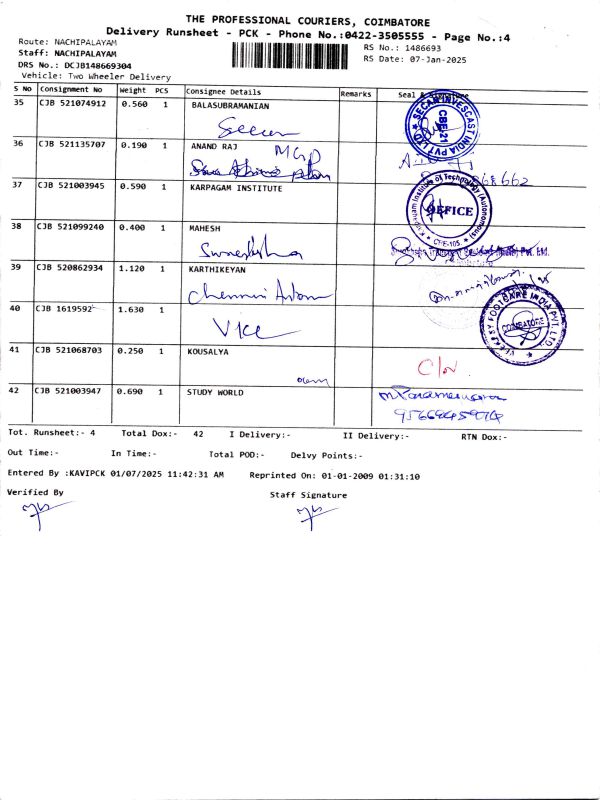 THE PROFESSIONAL COURIERS, COIMBATORE
Delivery Runsheet - PCK - Phone No.:0422-3505555 - Page No.:4
Route: NACHIPALAYAM
RS No.: 1486693
Staff: NACHIPALAYAM
RS Date: 07-Jan-2025
DRS No.: DCJB148669304
Vehicle: Two Wheeler Delivery
S No Consignment No Weight PCS Consignee Details Remarks Seal & Signature
35 CJB 521074912 0.560 1 BALASUBRAMANIAN
SECAN INVESCAST INDIA PVT LTD
CBE-21
36 CJB 521135707 0.190 1 ANAND RAJ
37 CJB 521003945 0.590 1 KARPAGAM INSTITUTE
Karpagam Institute of Technology (Autonomous)
OFFICE
CBE-105
38 CJB 521099240 0.400 1 MAHESH
Pvt. Ltd.
39 CJB 520862934 1.120 1 KARTHIKEYAN
Chennai
40 CJB 1619592 1.630 1
COIMBATORE
FOOTCARE INDIA PVT. LTD.
41 CJB 521068703 0.250 1 KOUSALYA
42 CJB 521003947 0.690 1 STUDY WORLD
Tot. Runsheet:- 4 Total Dox:- 42 I Delivery:- II Delivery:- RTN Dox:-
Out Time:- In Time:- Total POD:- Delvy Points:-
Entered By :KAVIPCK 01/07/2025 11:42:31 AM Reprinted On: 01-01-2009 01:31:10
Verified By Staff Signature